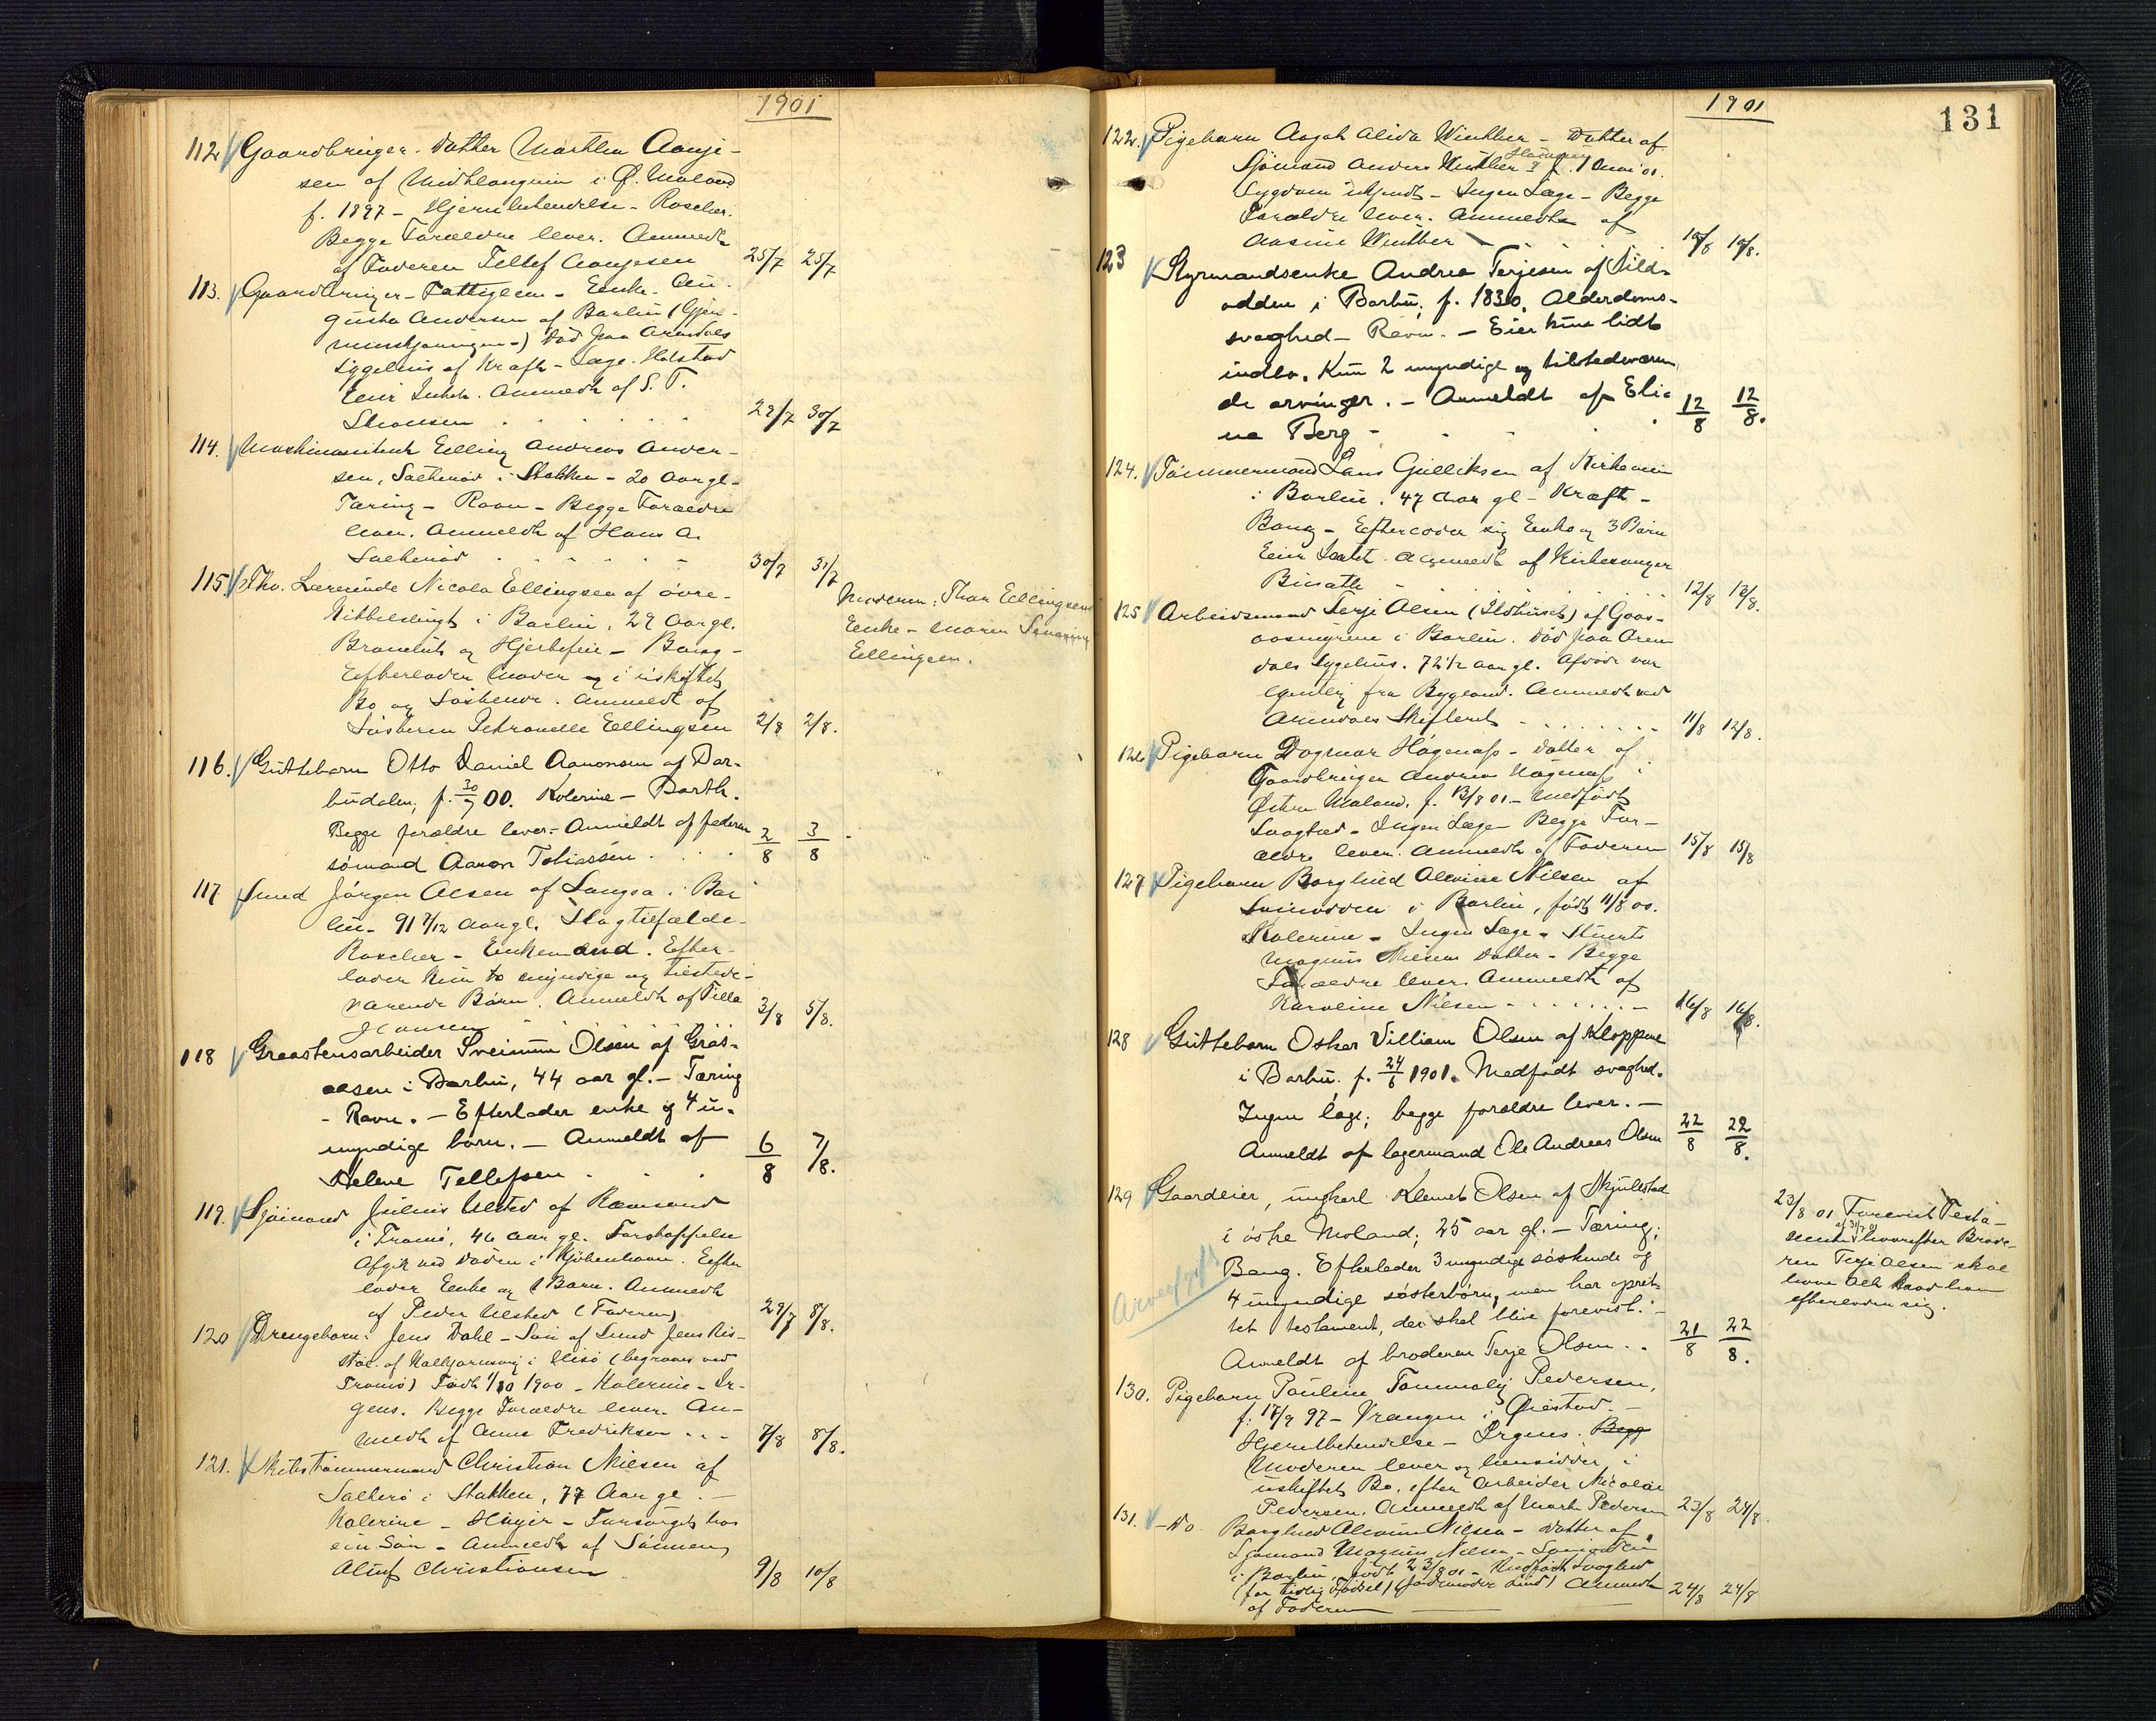 1901
112 Gaardbruger. Datter Marthea Aanje-
sen af i Ø. Moland
f. 1897 - Hjernebetendelse - Roscher.
Begge Forældre lever. Anmeldt
af Faderen Tellef Aanjesen 25/7 25/7
113. Gaardbruger - Fattiglem - Enke. Au-
gusta Andersen af Barbu (Gjen-
) Død paa Arendals
Sygehus af Kræft - Læge. Holstad
Eier Intet. Anmeldt af S. T.
29/7 30/7
114. Maskinassistent Elling Andreas Ander-
sen, Salterød i Stokken - 20 Aar gl.
Tæring - Ravn - Begge Forældre
lever. Anmeldt af Hans A.
Salterød 30/7 31/7
115. Fhv. Lærerinde Nicola Ellingsen af øvre
i Barbu. 29 Aar gl.
og Hjertefeil - Bang -
Efterlader Moder og i uskiftet
Bo og Søskende. Anmeldt af
Søsteren Petronelle Ellingsen 2/8 2/8.
Moderen, Thor Ellingsens
Enke - Maren
Ellingsen.
116. Guttebarn Otto Daniel Aanonsen af Bar-
budalen, f. 30/7 00. Kolerine - Barth.
Begge forældre lever. Anmeldt af faderen
sömand Aanon Tobiassen. 2/8 3/8
117 Smed Jørgen Olsen af Langsæ i Bar
bu. 91 7/12 Aar gl. Slagtilfælde -
Roscher - Enkemand. Efter-
lader kun to myndige og tilstede-
værende Børn. Anmeldt af Tilla
Hansen 3/8 5/8.
118 Graastensarbeider Sveinum Olsen af Gras-
aasen i Barbu, 44 aar gl. - Tæring
- Ravn. - Efterlader enke og 4 u-
myndige børn. - Anmeldt af
Helene Tellefsen 6/8 7/8.
119. Sjømand Julius Ulsted af Ræmsund
i Tromø, 46 Aar gl. Forstoppelse
Afgik ved Døden i Kjøbenhavn. Efter
lader Enke og 1 Barn. Anmeldt
af Peder Ulsted (Faderen) 29/7 8/8.
120 Drengebarn: Jens Dahl - Søn af Smed Jens
af i Hisø (begraves ved
Tromø) Født 1/10 1900 - Kolerine - Dr-
gens. Begge Forældre lever. An-
meldt af Anna Fredriksen 7/8 8/8.
121. Skibstømmermand Christian Nielsen af
Salterø i Stokken, 77 Aar gl. -
Kolerine - Høyer - Forsørgets hos
sin Søn - Anmeldt af Sønnen
Aluf Christiansen 9/8 10/8
1901
131
122. Pigebarn Aagot Alida Winther - Datter af
Sjømand Anders Winther f. 1 Mai 01.
Sygdom ukjendt - Ingen Læge - Begge
Forældre lever. Anmeldt af
Aasine Winther 10/8 10/8.
123 Styrmandsenke Andrea Terjesen af Sild-
odden i Barbu, f. 1830. Alderdoms-
svaghed - Ravn. - Eier kun lidt
indbo. Kun 2 myndige og tilstedeværen
de arvinger. - Anmeldt af Eli-
ne Berg - 12/8 12/8.
124. Tømmermand Lars Gulliksen af
i Barbu. 47 Aar gl - Kræft -
Bang - Efterlader sig Enke og 3 Børn
Eier Intet. Anmeldt af Kirkesanger
Binath 12/8 12/8.
125 Arbeidsmand Terje Olsen (Ildhuset) af Graas-
aasmyrene i Barbu. Død paa Aren
dals Sygehus. 72 1/2 Aar gl. Afdøde var
egentlig fra Bygland. Anmeldt ved
Arendals Skifteret 11/8 12/8.
126 Pigebarn Dagmar Hagenæs - Datter af
Gaardbruger Andreas Hagenæs i
Østre Moland. f. 13/8 01. - Medfødt
Svaghed - Ingen Læge Begge For-
ældre lever. Anmeldt af Faderen 15/8 15/8
127 Pigebarn Borghild Alvine Nilsen af
Songodden i Barbu, født 11/8 00.
Kolerine - Ingen Læge -
Magnus Nilsens Datter - Begge
Forældre lever. Anmeldt af
Karoline Nilsen 16/8 16/8.
128 Guttebarn Oskar Villiam Olsen af Kloppene
i Barbu. f. 24/6 1901. Medfødt svaghed.
Ingen læge; begge forældre lever. -
Anmeldt af lagermand Ole Andreas Olsen 22/8 22/8.
129 Gaardeier, ungkarl Klemet Olsen af Skjulestad
i østre Moland; 25 aar gl. - Tæring;
Bang. Efterlader 3 myndige søskende og
4 umyndige søsterbørn, men har opret-
tet testament, der skal blive forevist. -
Anmeldt af broderen Terje Olsen. 21/8 22/8.
23/8 01 Forevist Testa-
mente af 31/7 01 hvorefter Brode-
ren Terje Olsen skal
arve Alt hvad han
efterlader sig.
130. Pigebarn Pauline Tommaly Pedersen,
f. 17/9 97 - Vrangen i Øiestad. -
Hjernebetendelse - Drgens. Begg
Moderen lever og hensidder i
uskiftet Bo. efter Arbeider Nicolai
Pedersen. Anmeldt af Marte Pedersen 23/8 24/8.
131. - Do. Borghild Alvine Nilsen - Datter af
Sjømand Magnus Nilsen - Songodden
i Barbu, født 23/8 01 - Medfødt Svaghed
(for tidlig Fødsel) (Jordmoder Lind) Anmeldt
af Faderen 24/8 24/8